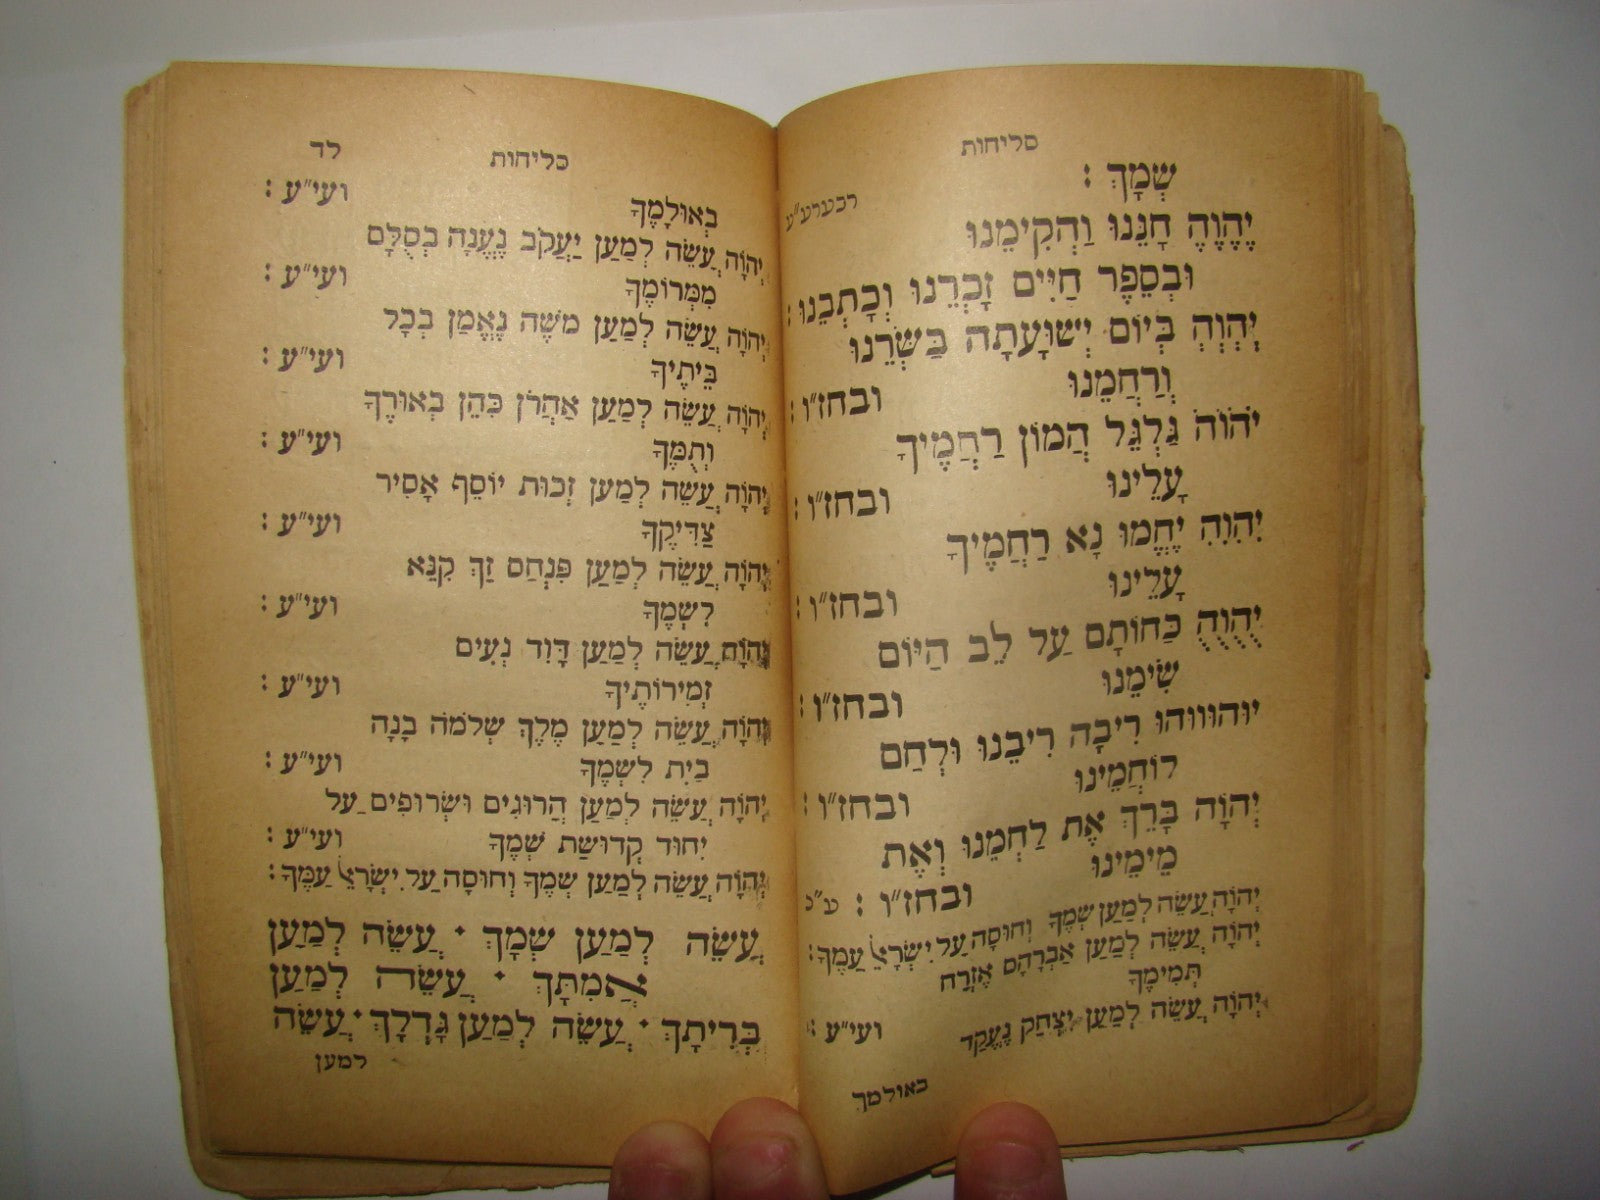 סליחות
שְׁמָךְ :
רבערע״ע
יֶהֶוֶהֶ חָנֵּנוּ וַהֲקִימֵנוּ
וּבְסֵפֶר חַיִּים זָכְרֵנוּ וְכָתְבֵנוּ :
יְהְוְהְ בְּיוֹם יְשׁוּעָתָה בַּשְּׂרֵנוּ
וְרַחֲמֵנוּ ובחז״ו :
יֹהֹוֹהֹ גַּלְגֵּל הֲמוֹן רַחֲמֶיךָ
עָלֵינוּ ובחז״ו :
יִהִוִהִ יֶחֱמוּ נָא רַחֲמֶיךָ
עָלֵינוּ ובחז״ו :
יֻהֻוֻהֻ כַּחוֹתָם עַל לֵב הַיּוֹם
שִׂימֵנוּ ובחז״ו :
יוּהוּווּהוּ רִיבָה רִיבֵנוּ וּלְחַם
לוֹחֲמֵינוּ ובחז״ו :
יְהֹוָה בָּרֵךְ אֶת לַחְמֵנוּ וְאֶת
מֵימֵינוּ ובחז״ו : ע״כ
יְהֹוָה עֲשֵׂה לְמַעַן שְׁמֶךָ וְחוּסָה עַל יִשְׂרָאֵל עַמֶּךָ :
יְהֹוָה עֲשֵׂה לְמַעַן אַבְרָהָם אֶזְרָח
תְּמִימֶךָ ועי״ע :
יְהֹוָה עֲשֵׂה לְמַעַן יִצְחָק נֶעֱקַד
באולמך
סליחות לד
בְּאוּלָמֶךָ ועי״ע :
יְהֹוָה עֲשֵׂה לְמַעַן יַעֲקֹב נֶעֱנָה בְסֻלָּם
מִמְּרוֹמֶךָ ועי״ע :
יְהֹוָה עֲשֵׂה לְמַעַן מֹשֶׁה נֶאֱמַן בְּכָל
בֵּיתֶיךָ ועי״ע :
יְהֹוָה עֲשֵׂה לְמַעַן אַהֲרֹן כִּהֵן בְּאוּרֶךָ
וְתֻמֶּךָ ועי״ע :
יְהֹוָה עֲשֵׂה לְמַעַן זְכוּת יוֹסֵף אָסִיר
צַדִּיקֶךָ ועי״ע :
יְהֹוָה עֲשֵׂה לְמַעַן פִּנְחָס זַךְ קִנֵּא
לִשְׁמֶךָ ועי״ע :
יְהֹוָה עֲשֵׂה לְמַעַן דָּוִד נְעִים
זְמִירוֹתֶיךָ ועי״ע :
יְהֹוָה עֲשֵׂה לְמַעַן מֶלֶךְ שְׁלֹמֹה בָּנָה
בַיִת לִשְׁמֶךָ ועי״ע :
יְהֹוָה עֲשֵׂה לְמַעַן הֲרוּגִים וּשְׂרוּפִים עַל
יִחוּד קְדוּשַּׁת שְׁמֶךָ ועי״ע :
יְהֹוָה עֲשֵׂה לְמַעַן שְׁמֶךָ וְחוּסָה עַל יִשְׂרָאֵל עַמֶּךָ :
עֲשֵׂה לְמַעַן שְׁמָךְ • עֲשֵׂה לְמַעַן
אֲמִתָּךְ • עֲשֵׂה לְמַעַן
בְּרִיתָךְ • עֲשֵׂה לְמַעַן גָּדְלָךְ • עֲשֵׂה
למען